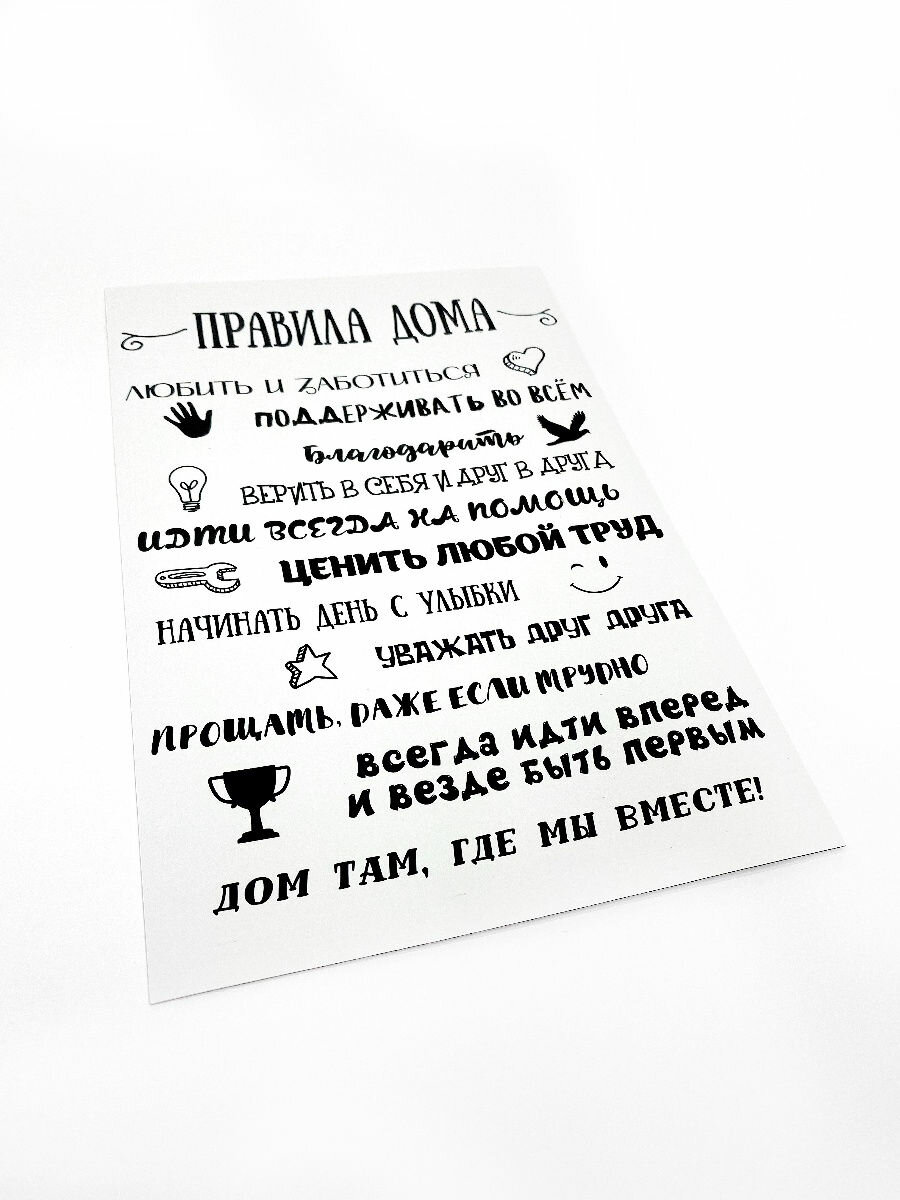 ПРАВИЛА ДОМА
ЛЮБИТЬ И ЗАБОТИТЬСЯ
ПОДДЕРЖИВАТЬ ВО ВСЁМ
Благодарить
ВЕРИТЬ В СЕБЯ И ДРУГ В ДРУГА
ИДТИ ВСЕГДА НА ПОМОЩЬ
ЦЕНИТЬ ЛЮБОЙ ТРУД
НАЧИНАТЬ ДЕНЬ С УЛЫБКИ
УВАЖАТЬ ДРУГ ДРУГА
ПРОЩАТЬ, ДАЖЕ ЕСЛИ ТРУДНО
ВСЕГДА ИДТИ ВПЕРЕД
И ВЕЗДЕ БЫТЬ ПЕРВЫМ
ДОМ ТАМ, ГДЕ МЫ ВМЕСТЕ!